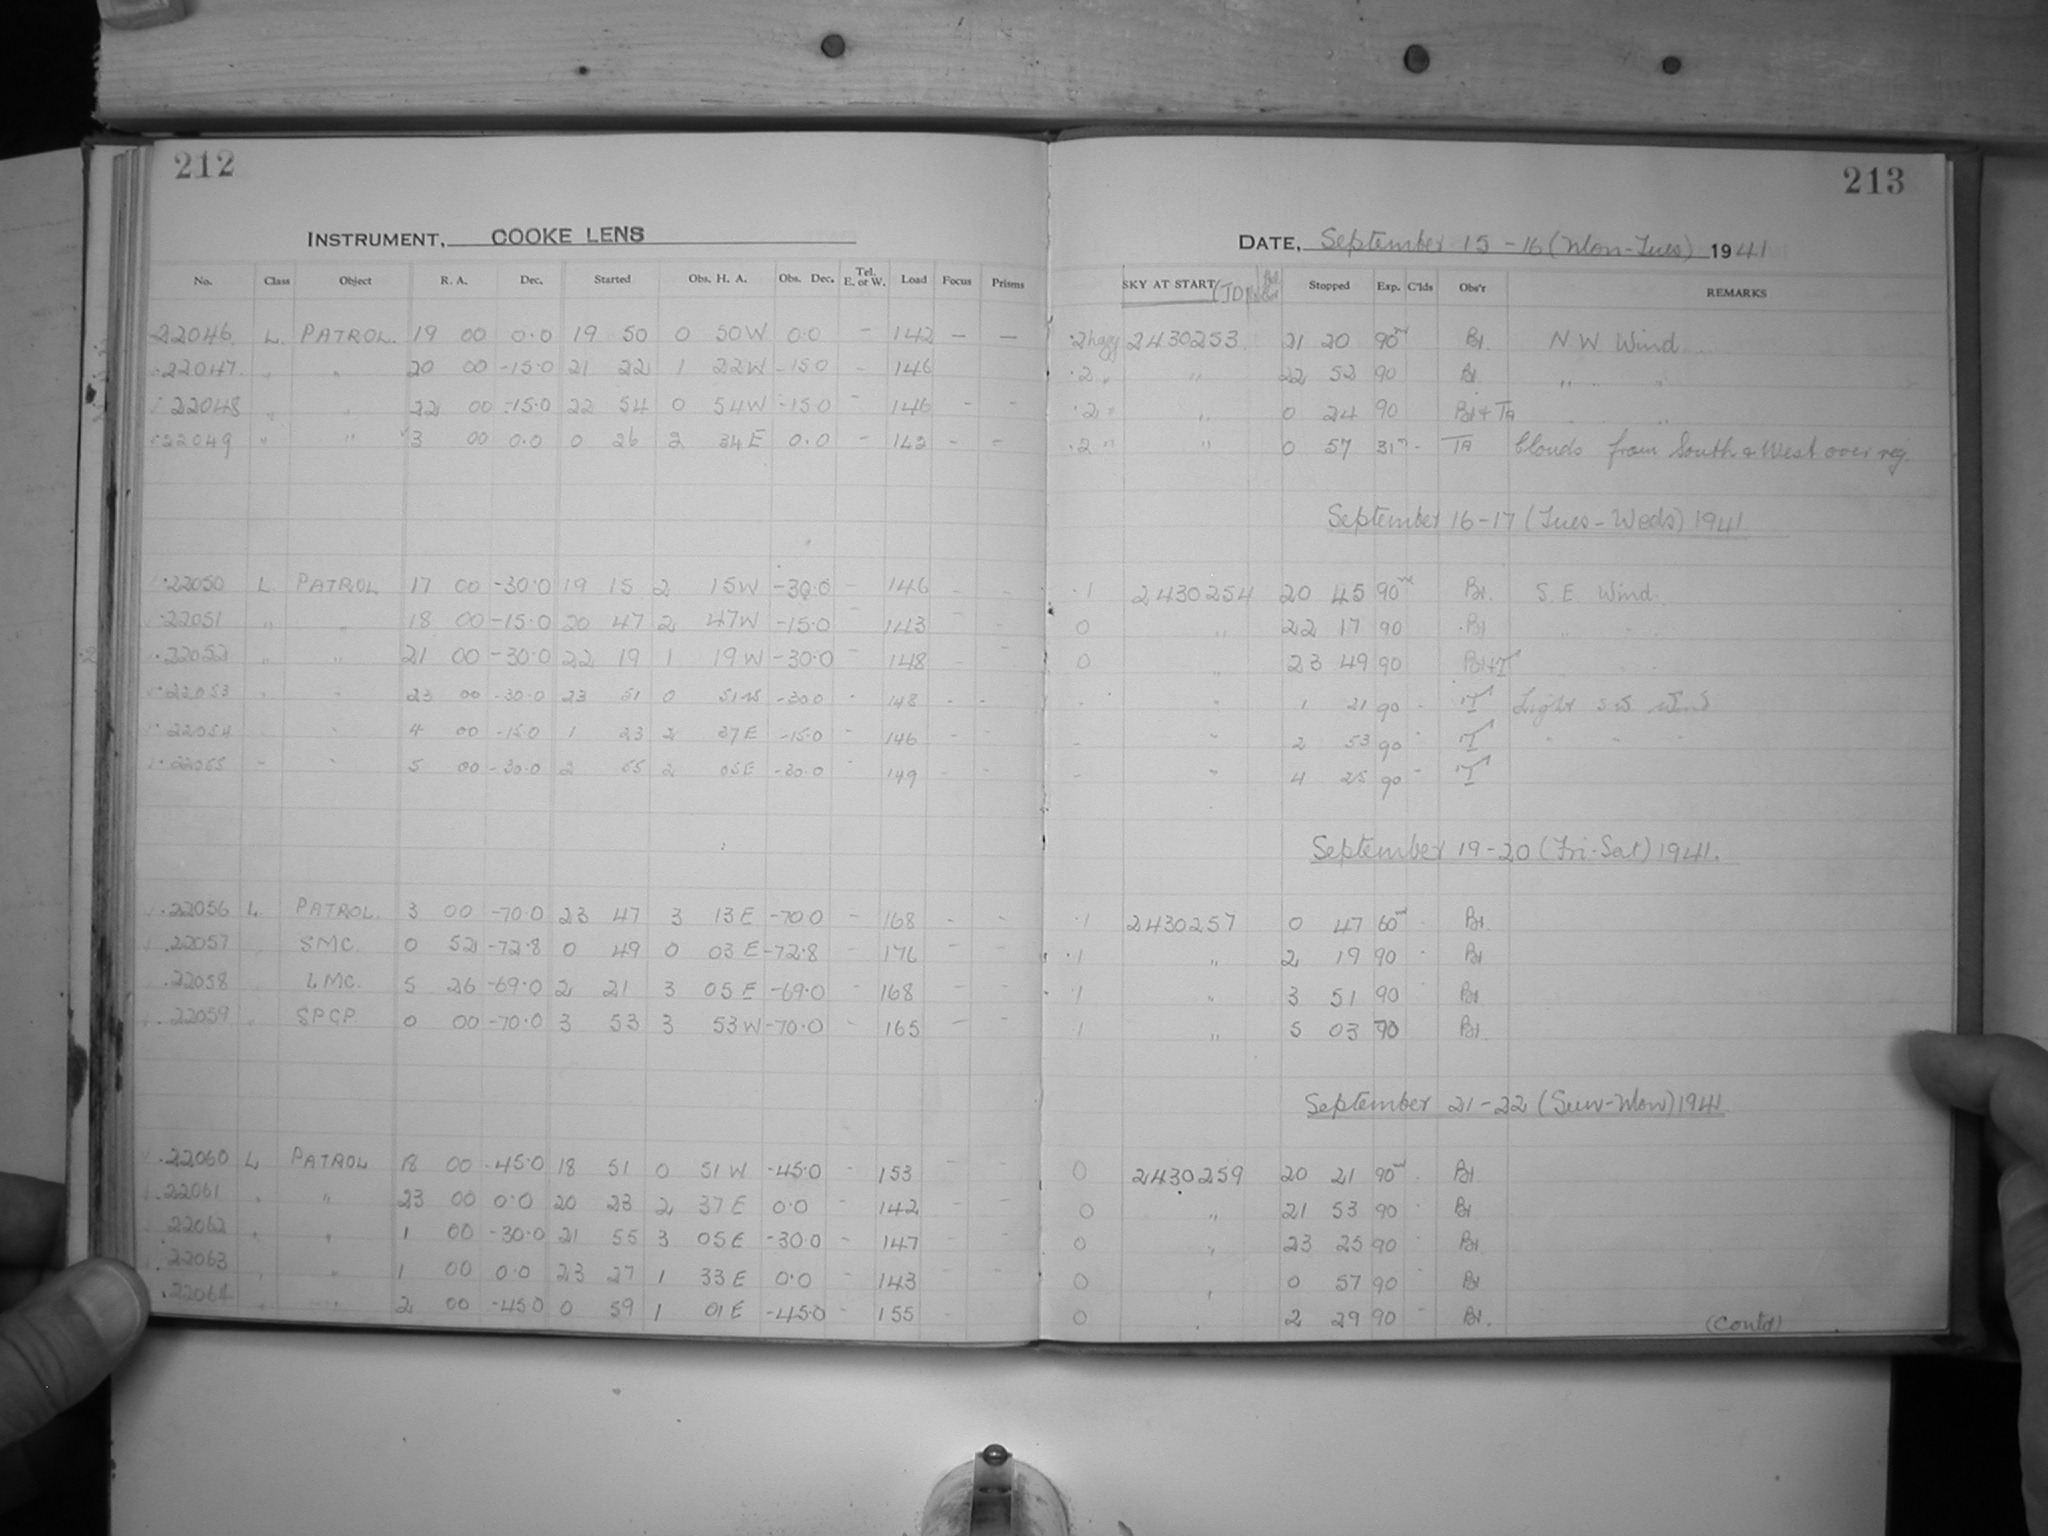 212
INSTRUMENT, COOKE LENS
No. Class Object R. A. Dec. Started Obs. H. A. Obs. Dec. Tel. E. or W. Load Focus Prisms
22046 L PATROL 19 00 0.0 19 50 0 50W 0.0 - 142 - -
22047 " " 20 00 -15.0 21 22 1 22W -15.0 - 146
22048 " " 22 00 -15.0 22 54 0 54W -15.0 - 146 - -
22049 " " 3 00 0.0 0 26 2 34E 0.0 - 142 - -
22050 L PATROL 17 00 -30.0 19 15 2 15W -30.0 - 146 - -
22051 " " 18 00 -15.0 20 47 2 47W -15.0 - 143 - -
22052 " " 21 00 -30.0 22 19 1 19W -30.0 - 148 - -
22053 " " 23 00 -30.0 23 51 0 51W -30.0 - 148 - -
22054 " " 4 00 -15.0 1 23 2 37E -15.0 - 146 - -
22055 " " 5 00 -30.0 2 55 2 05E -30.0 - 149 - -
22056 L PATROL. 3 00 -70.0 23 47 3 13E -70.0 - 168 - -
22057 " SMC. 0 52 -72.8 0 49 0 03E -72.8 - 176 - -
22058 " LMC. 5 26 -69.0 2 21 3 05E -69.0 - 168 - -
22059 " SPGP. 0 00 -70.0 3 53 3 53W -70.0 - 165 - -
22060 L PATROL 18 00 -45.0 18 51 0 51W -45.0 - 153 - -
22061 " " 23 00 0.0 20 23 2 37E 0.0 - 142 - -
22062 " " 1 00 -30.0 21 55 3 05E -30.0 - 147 - -
22063 " " 1 00 0.0 23 27 1 33E 0.0 - 143 - -
22064 " " 2 00 -45.0 0 59 1 01E -45.0 - 155 -
213
DATE, September 15-16 (Mon-Tues) 1941
SKY AT START (JD) Stopped Exp. C'lds Obs'r REMARKS
.2 hazy 2430253 21 20 90m Bl. N W Wind
.2 " " 22 52 90 Bl. " " "
.2 " " 0 24 90 Bl + TA " "
.2 " " 0 57 31m - TA Clouds from South & West over reg.
September 16-17 (Tues-Weds) 1941
.1 2430254 20 45 90m Bl. S. E. Wind.
0 " 22 17 90 Bl " " "
0 " 23 49 90 Bl+T " "
- " 1 21 90 - T Light
- " 2 53 90 - T " " "
- " 4 25 90 - T
September 19-20 (Fri-Sat) 1941.
.1 2430257 0 47 60m - Bl.
.1 " 2 19 90 - Bl
.1 " 3 51 90 Bl
1 " 5 03 70 Bl.
September 21-22 (Sun-Mon) 1941
0 2430259 20 21 90m - Bl
0 " 21 53 90 - Bl
0 " 23 25 90 - Bl
0 " 0 57 90 - Bl
0 " 2 29 90 - Bl.
(Contd)